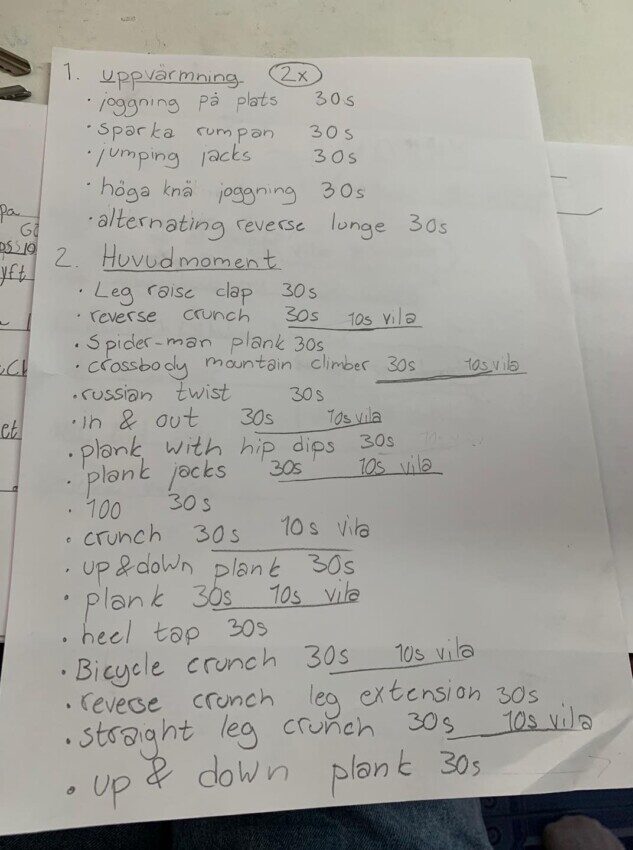 1. uppvärmning 2x
· joggning på plats 30s
· sparka rumpan 30s
· jumping jacks 30s
· höga knä joggning 30s
· alternating reverse lunge 30s
2. Huvudmoment
· Leg raise clap 30s
· reverse crunch 30s 10s vila
· Spider-man plank 30s
· crossbody mountain climber 30s 10s vila
· russian twist 30s
· in & out 30s 10s vila
· plank with hip dips 30s
· plank jacks 30s 10s vila
· 100 30s
· crunch 30s 10s vila
· up & down plank 30s
· plank 30s 10s vila
· heel tap 30s
· Bicycle crunch 30s 10s vila
· reverse crunch leg extension 30s
· straight leg crunch 30s 10s vila
· up & down plank 30s
pa
yft
et